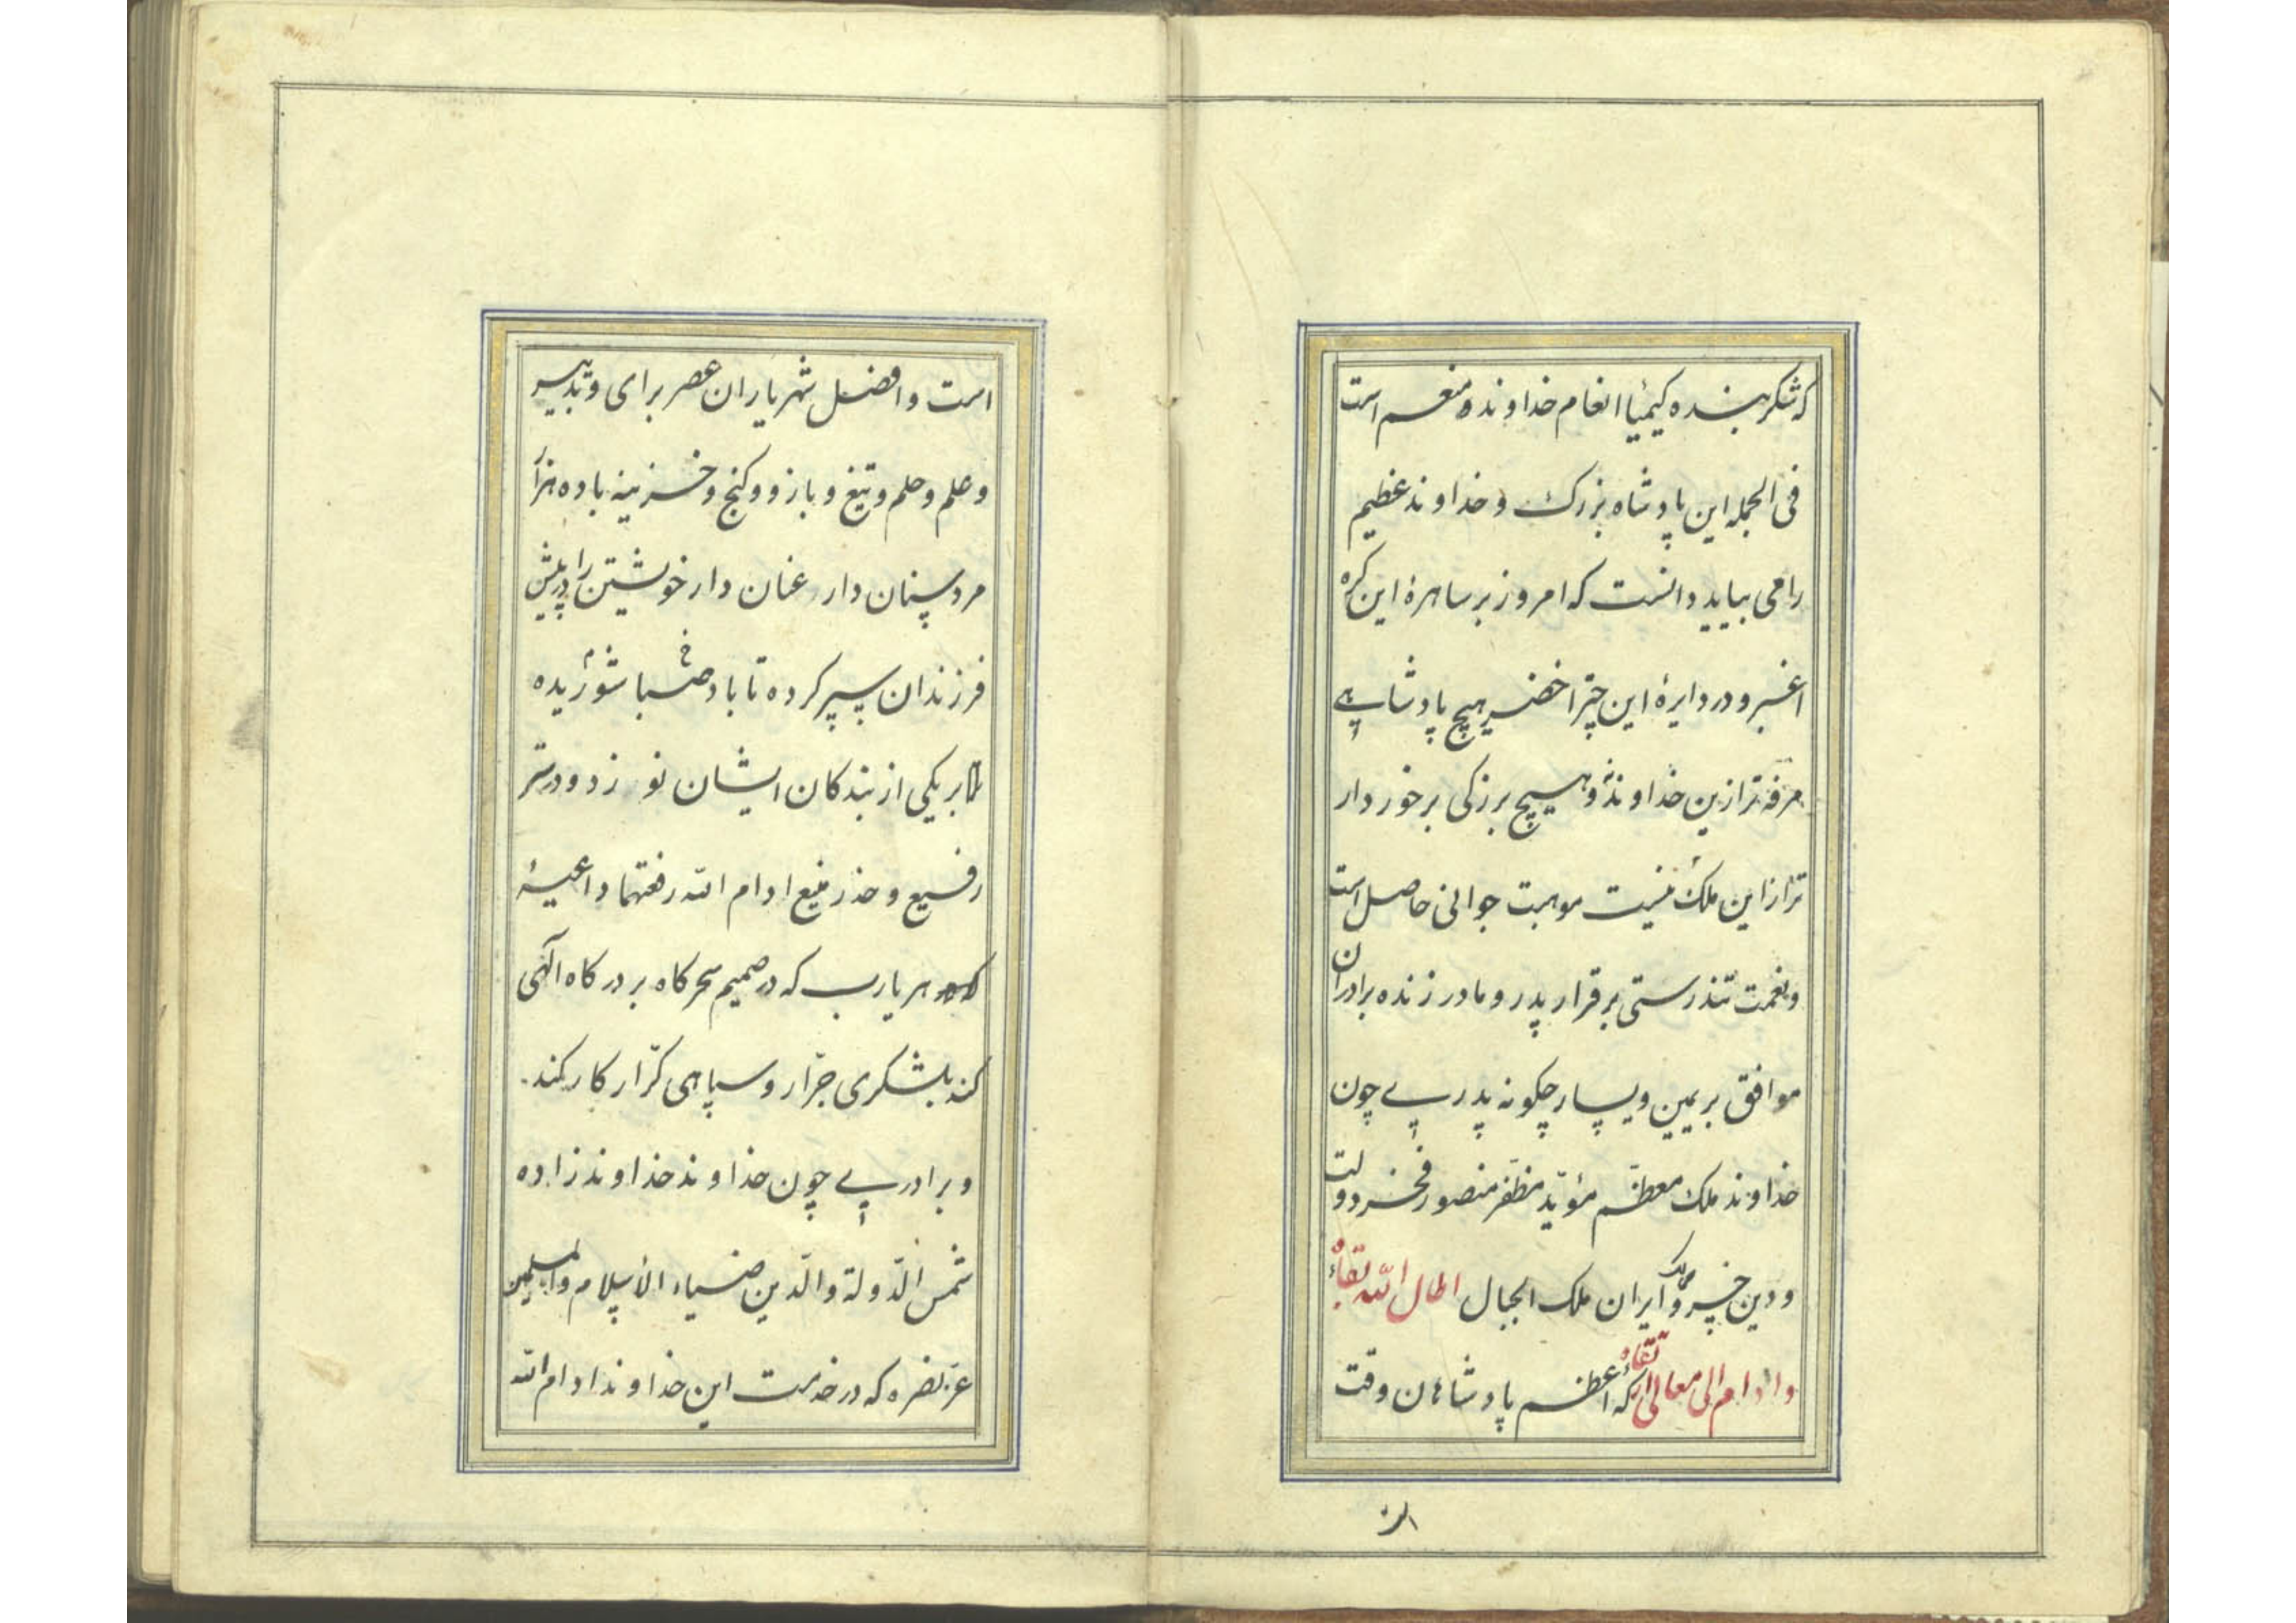 که شکر بنده کیمیاء انعام خداونده منعم است
فی الجمله این پادشاه بزرک و خداوند عظیم
را می بیاید دانست که امروز بر ساهرهٔ این کره
اغبر و در دایرهٔ این چتر اخضر هیچ پادشاهی
مرفه تر ازین خداوند و هیچ بزرکی برخوردار
تر ازاین ملک نیست موهبت جوانی حاصل است
و نعمت تندرستی برقرار پدر و مادر زنده برادران
موافق بر یمین و یسار چکونه پدری چون
خداوند ملک معظم مؤید مظفر منصور فخر دولت
و دین خسرو ایران ملک الجبال اطال الله بقاءه
و ادام الی معالی ارتقاءه که اعظم پادشاهان وقت
است و افضل شهریاران عصر برای و تدبیر
و علم و حلم و تیغ و بازو و کنج و خزینه با ده هزار
مرد سنان دار عنان دار خویشتن را در پیش
فرزندان سپر کرده تا باد صبا شوریده
بر یکی از بندکان ایشان نوزد و در ستر
رفیع و خدر منیع ادام الله رفعتهما داعیهٔ
که هر یارب که در صمیم سحرکاه بر درکاه الهی
کند بلشکری جرّار و سپاهی کرّار کار کند
و برادری چون خداوند خداوند زاده
شمس الدّولة والدّین ضیاء الاسلام والمسلمین
عز نصره که در خدمت این خداوند ادام الله